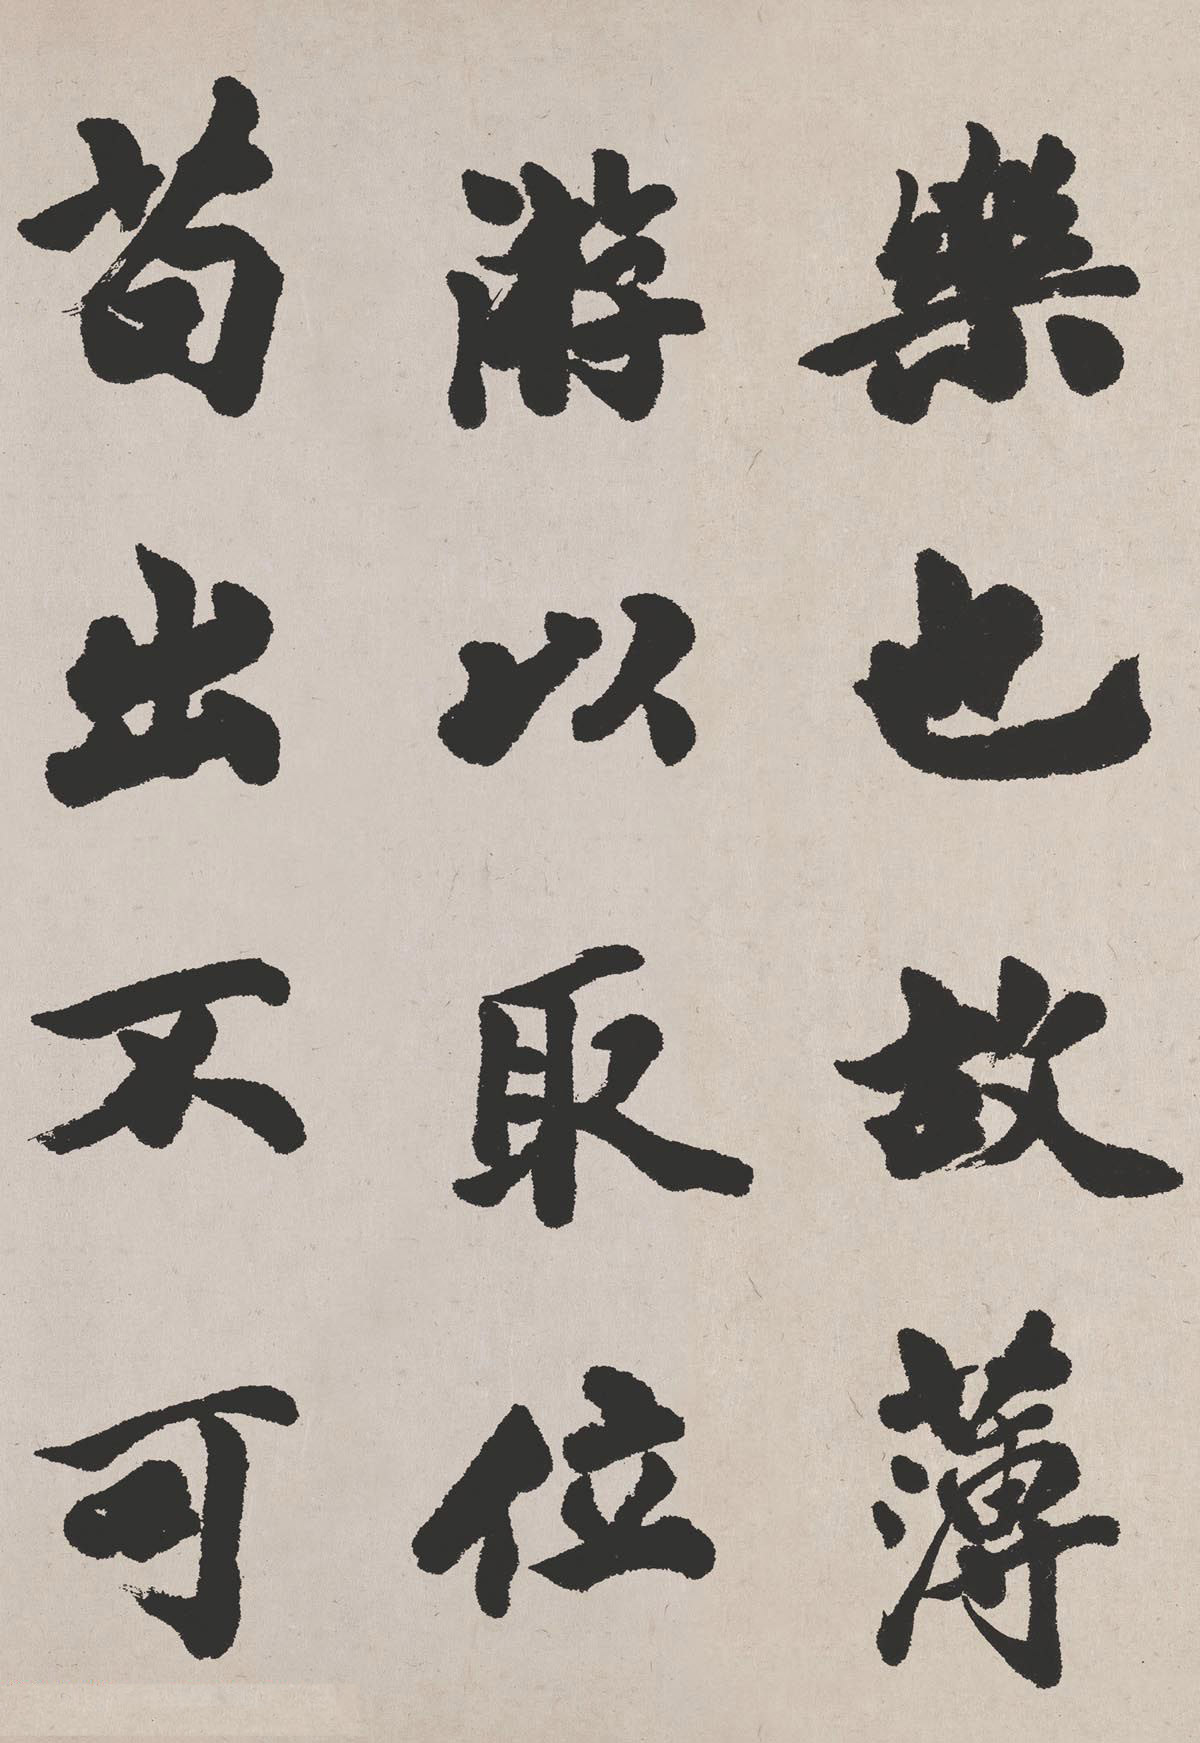 樂也故薄
游以取位
苟出不可